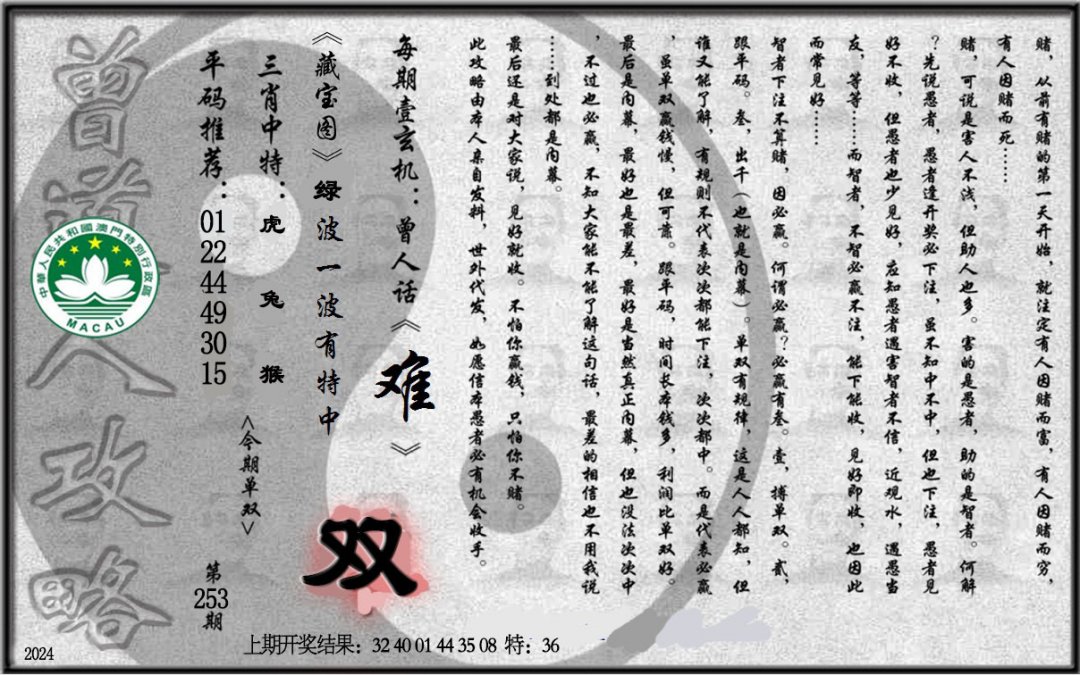 赌，从前有赌的第一天开始，就注定有人因赌而富，有人因赌而穷，
有人因赌而死……
赌，可说是害人不浅，但助人也多。害的是愚者，助的是智者。何解
？先说愚者，愚者逢开奖必下注，虽不知中不中，但也下注，愚者见
好不收，但愚者也少见好，应知愚者遇害智者不信，近观水，遇愚当
友，等等……而智者，不智必赢不注，能下能收，见好即收，也因此
而常见好……
智者下注不算赌，因必赢。何谓必赢？必赢有叁。壹，搏单双。贰，
跟平码。叁，出千（也就是内幕）。单双有规律，这是人人都知，但
谁又能了解，有规则不代表次次都能下注，次次都中。而是代表必赢
，虽单双赢钱慢，但可靠。跟平码，时间长本钱多，利润比单双好。
最后是内幕，最好也是最差，最好是当然真正内幕，但也没法次次中
，不过也必赢，不知大家能不能了解这句话，最差的相信也不用我说
……到处都是内幕。
最后还是对大家说，见好就收。不怕你赢钱，只怕你不赌。
此攻略由本人亲自发料，世外代发，如愿信本愚者必有机会收手。
每期壹玄机：曾人话《难》
《藏宝图》绿波一波有特中
双
三肖中特：虎 兔 猴
<今期单双>
平码推荐：01 22 44 49 30 15
第253期
曾道人攻略
中華人民共和國澳門特別行政區
MACAU
上期开奖结果：32 40 01 44 35 08 特：36
2024